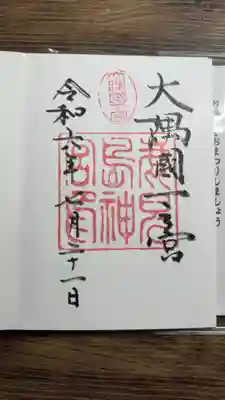 大隅國一之宮
鹿兒島神宮
令和六年七月二十一日
おまつりしましょう